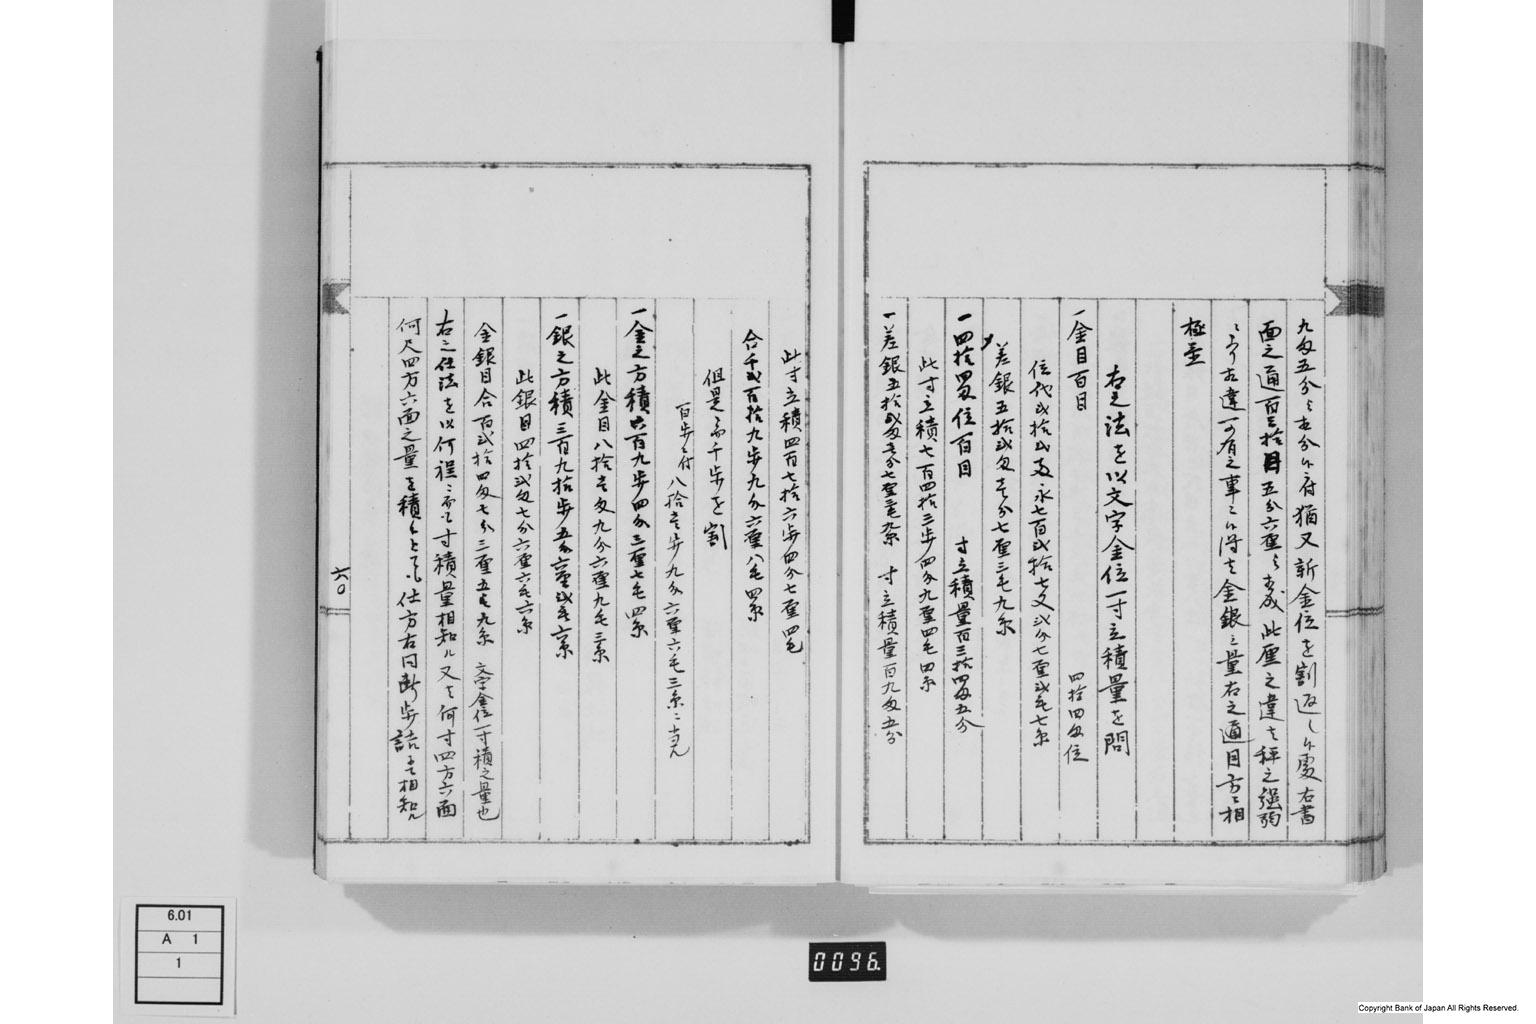 九匁五分ゟ壱分ニ府猶又新金位を割返し候處右書
面之通百三拾目五分六厘ニ成此厘之違は秤之强弱
ニ而相違可有之事ニ候得は金銀之量右之通目方は相
極置
右之法を以文字金位一寸立積量を問
一金目百目 四拾四匁位
位代弐拾弐両永七百弐拾七文弐分七厘弐毛七糸
差銀五拾弐匁壱分七厘三毛九糸
一四拾四匁位百目 寸立積量百三拾四匁五分
此寸立積七百四拾三歩四分九厘四毛四糸
一差銀五拾弐匁壱分七厘三毛九糸 寸立積量百九匁五分
此寸立積四百七拾六歩四分七厘四毛
合千弐百拾九歩九分六厘八毛四糸
但是ニ而千歩を割
百歩ニ付八拾壱歩九分六厘六毛三糸ニ当ル
一金之方積六百九歩四分三厘七毛四糸
此金目八拾壱匁九分六厘九毛三糸
一銀之方積三百九拾歩五分六厘弐毛六糸
此銀目四拾弐匁七分六厘六毛六糸
金銀目合百弐拾四匁七分三厘五毛九糸 文字金位一寸積之量也
右之仕法を以何程ニ而も寸積量相知ル又は何寸四方六面
何尺四方六面之量を積候とても仕方右同断歩詰ニて相知ル
六〇
6.01
A 1
1
0096.
Copyright Bank of Japan All Rights Reserved.